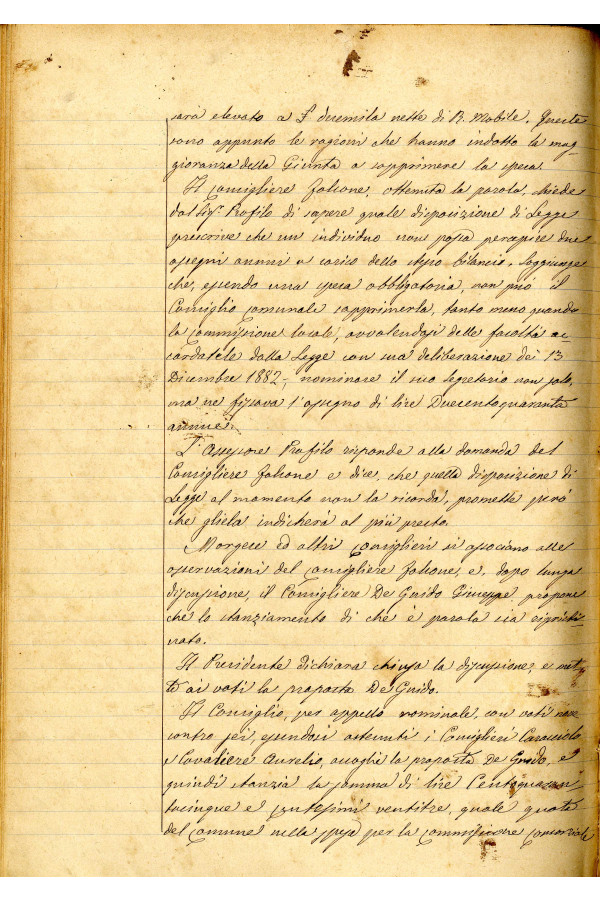 sarà elevato a £ duemila nette di R. Mobile. Queste
sono appunto le ragioni che hanno indotto la mag
gioranza della Giunta a sopprimere la spesa.
Il Consigliere Falcone, ottenuta la parola, chiede
dal Sig.r Profilo di sapere quale disposizione di Legge
prescrive che un individuo non possa percepire due
assegni annui a carico dello stesso bilancio. Soggiunge
che, essendo una spesa obbligatoria, non può il
Consiglio comunale sopprimerla, tanto meno quando
la Commissione locale, avvalendosi delle facoltà ac-
cordatele dalla Legge con sua deliberazione dei 13
Dicembre 1882, nominare il suo segretario non solo,
ma ne fissava l'assegno di lire Duecentoquaranta
annue.
L'Assessore Profilo risponde alla domanda del
Consigliere Falcone e dice, che quella disposizione di
Legge al momento non la ricorda, promette però
che gliela indicherà al più presto.
Morgese ed altri consiglieri si associano alle
osservazioni del consigliere Falcone, e, dopo lunga
discussione, il Consigliere De Guido Giuseppe propone
che lo stanziamento di che è parola sia ripristi-
nato.
Il Presidente dichiara chiusa la discussione, e met-
te ai voti la proposta De Guido.
Il Consiglio, per appello nominale, con voti nove
contro sei, essendosi astenuti i Consiglieri Caracciolo
e Cavaliere Aurelio, accoglie la proposta De Guido, e
quindi stanzia la somma di lire Centoquaran
tacinque e centesimi ventitre, quale quota
del Comune nella spesa per la commissione consorziale